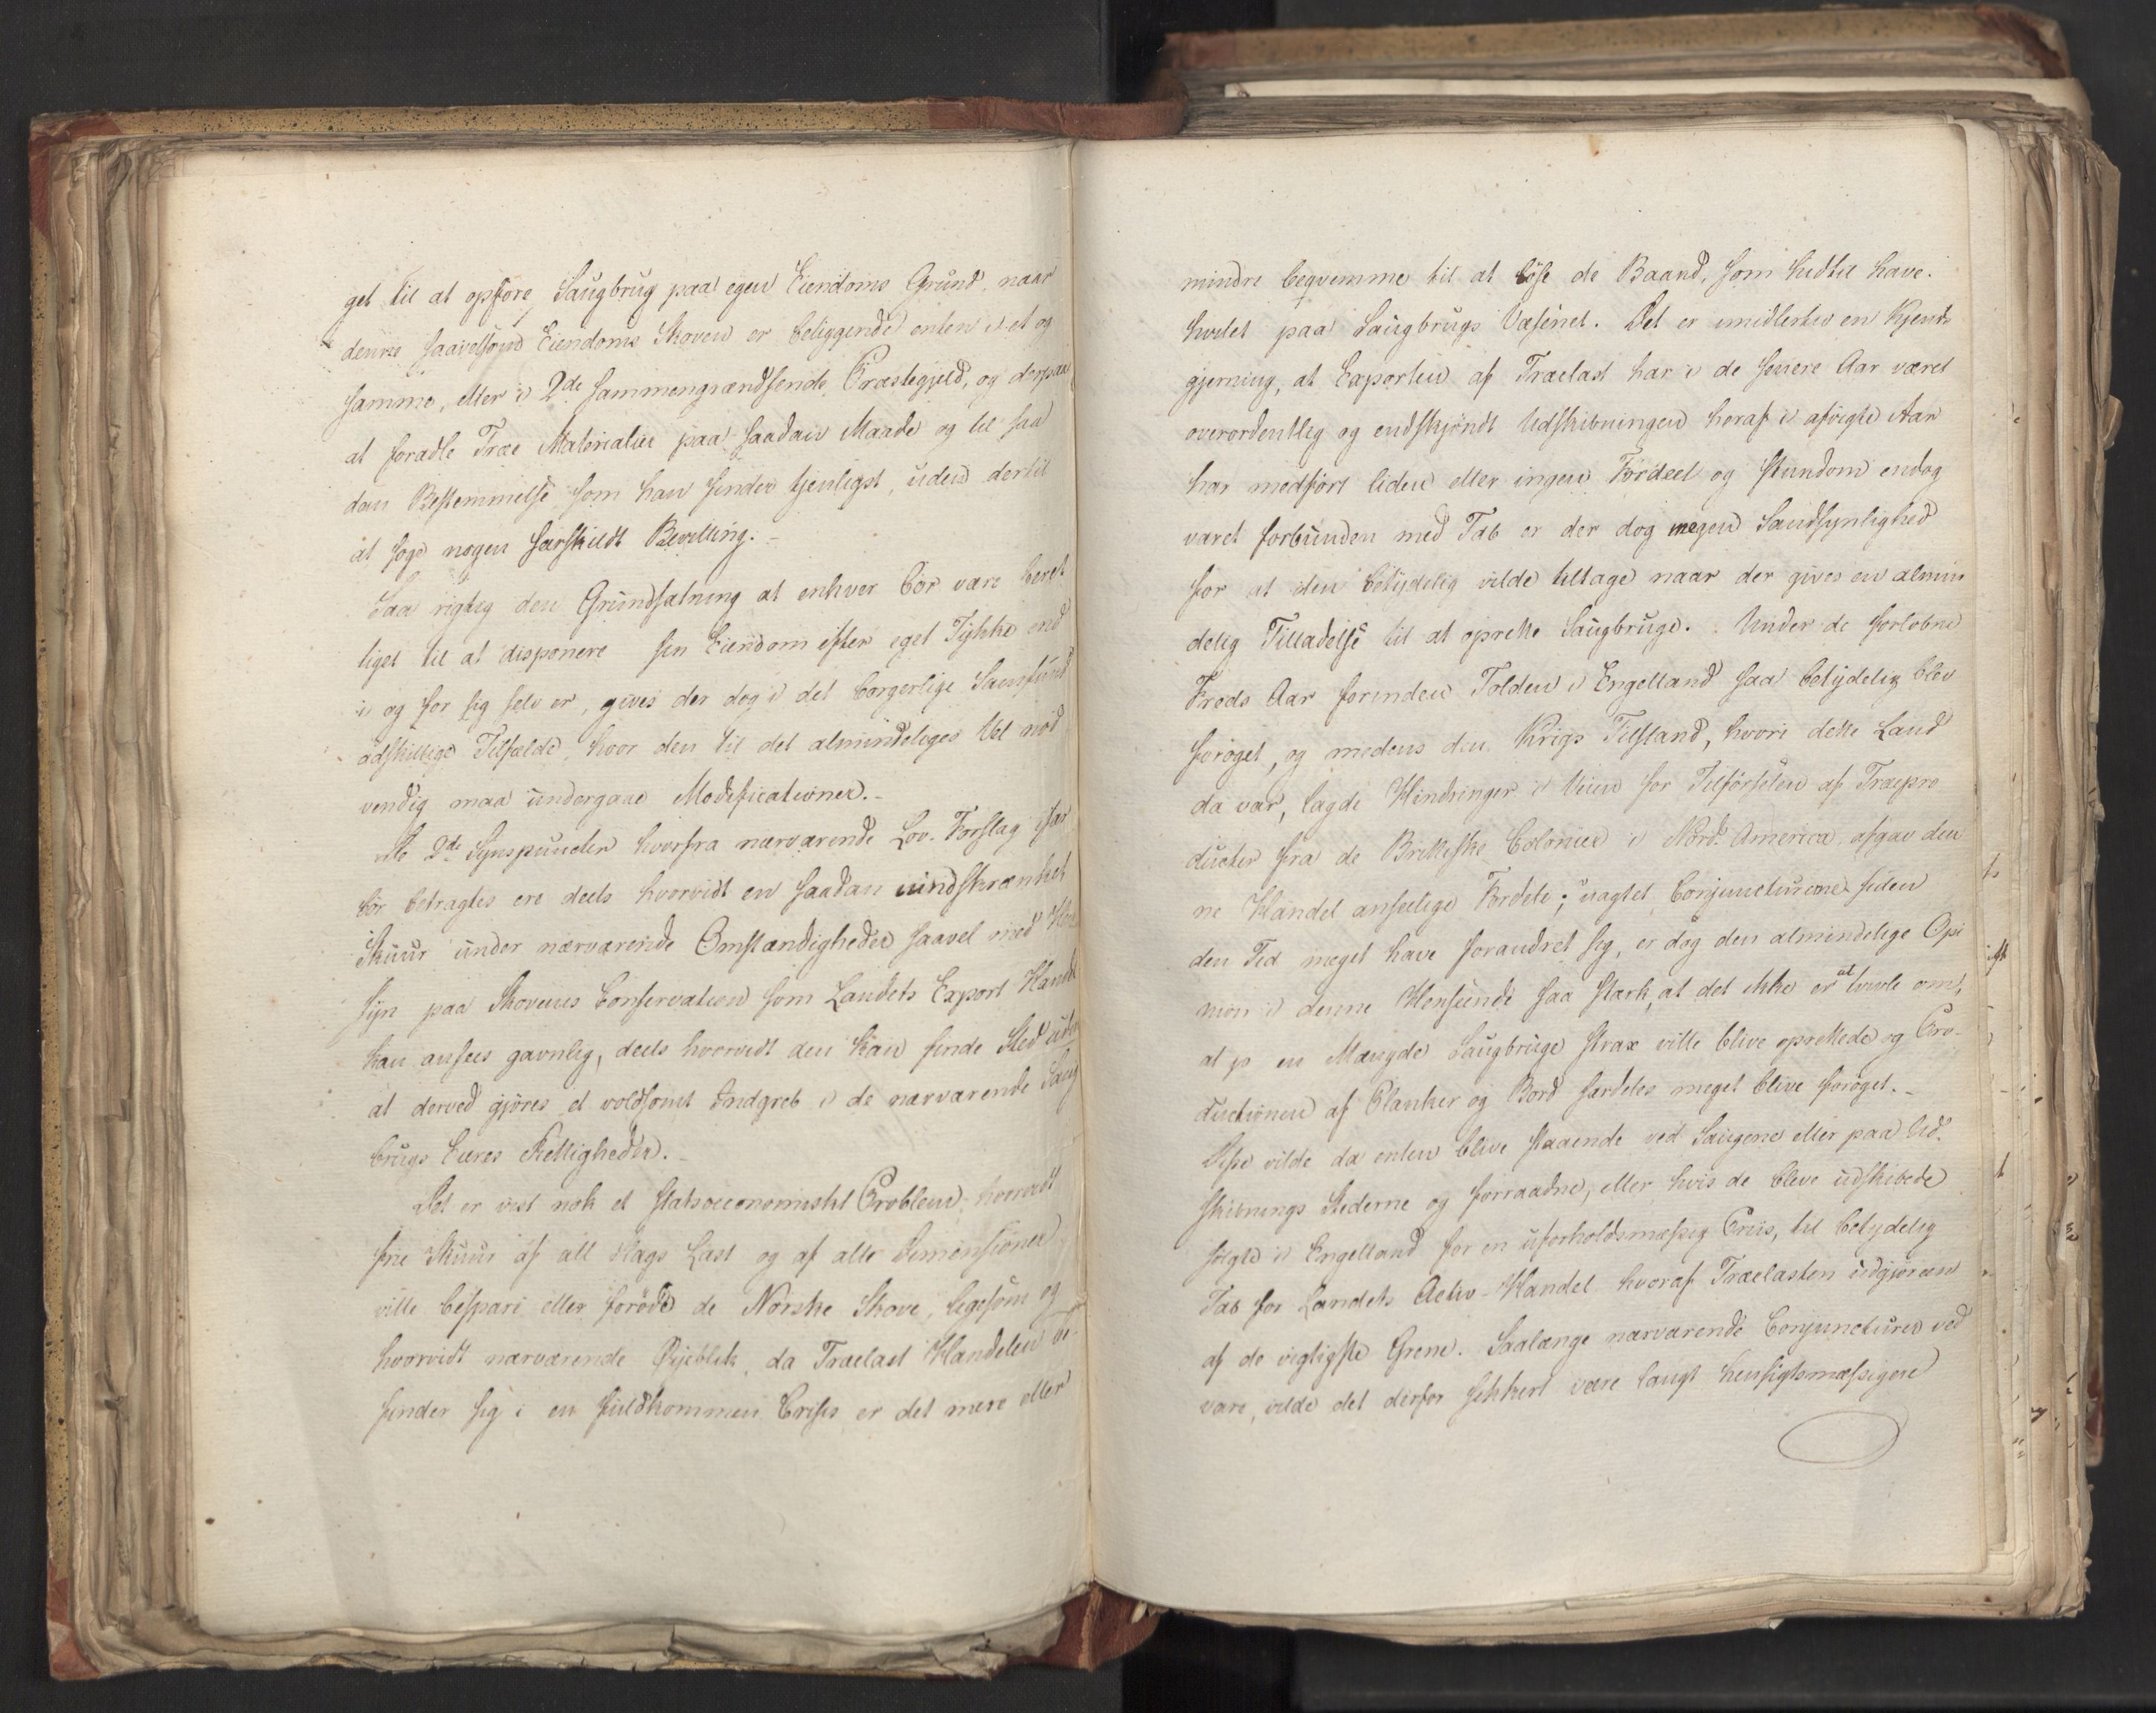 get til at opføre Saugbrug paa egen Eiendoms Grund, naar
denne saavelsom Eiendoms Skoven er beliggende enten i et og
samme, eller i 2de sammengrændsende Præstegjeld, og derpaa
at foradle Træe Materialier paa saadan Maade og til saa
dan Bestemmelse som han finder tjenligst, uden dertil
at søge nogen særskildt Bevilling.-
Saa rigtig den Grundsætning at enhver bør være beret
tiget til at disponere sin Eiendom efter eget Tykke end
i og for sig selv er, gives der dog i det borgerlige Samfund
adskillige Tilfælde, hvor den til det almindeliges Vel nød
vendig maa undergaae Modificationer.-
De 2de Synspuncter hvorfra nærværende Lov-Forslag især
bør betragtes ere deels hvorvidt en saadan uindskrænket
Skuur under nærværende Omstændigheder saavel med Hen
syn paa Skovenes Conservation som Landets Export Handel
kan ansees gavnlig, deels hvorvidt den kan finde Sted uden
at derved gjøres et voldsomt Indgreb i de nærværende Saug
brugs Eieres Rettigheder.-
Det er vist nok et statsoeconomiskt Problem, hvorvidt
frie Skuur af all Slags Last og af alle Dimensioner
ville bespare eller forøde de Norske Skove, ligesom og
hvorvidt nærværende Øjeblik, da Trælast Handelen be-
finder sig i en fuldkommen Crisis er det mere eller
mindre beqvemme til at løse de Baand, som hidtil have
hvilet paa Saugbrugs Væsenet. Det er imidlertid en Kjends
gjerning, at Exporten af Trælast har i de senere Aar været
overordentlig og endskjøndt Udskibningen heraf i afvigte Aar
har medført liden eller ingen Fordeel og stundom endog
været forbunden med Tab er der dog megen Sandsynlighed
for at den betydelig vilde tiltage naar der gives en almin
delig Tilladelse til at oprette Saugbruge. Under de forløbne
Freds Aar forinden Tolden i Engelland saa betydelig blev
forøget, og medens den Krigs Tilstand, hvori dette Land
da var, lagde Hindringer i Veien for Tilførselen af Træepro
ducter fra de Brittiske Colonier i Nord-America, afgav den
ne Handel anseelige Fordele; uagtet Conjuncturerne siden
den Tid meget have forandret sig, er dog den almindelige Opi
nion i denne Henseende saa stærk, at det ikke er at tvivle om,
at jo en Mængde Saugbruge strax ville blive oprettede og Pro-
ductionen af Planker og Bord særdeles meget blive forøget.-
Disse vilde da enten blive staaende ved Saugene eller paa Ud-
skibnings Stederne og forraadne, eller hvis de bleve udskibede
solgte i Engelland for en uforholdsmæssig Priis, til betydelig
Tab for Landets Activ-Handel hvoraf Trælasten udgjør een
af de vigtigste Grene. Saalænge nærværende Conjuncturer ved
vare, vilde det derfor sikkert være langt hensigtsmæssigere